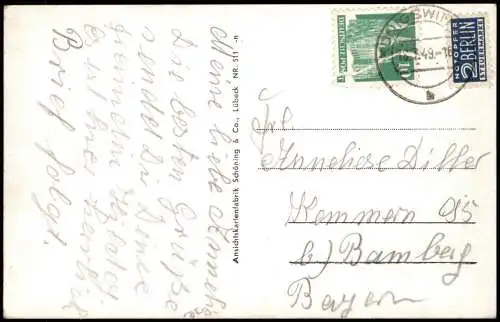 Meine liebe Anneliese
Die besten Grüße
sendet Dir Deine
Es ist hier herrlich
Brief folgt.
Ansichtskartenfabrik Schöning & Co., Lübeck NR. 511 -n
NOTOPFER
2 BERLIN
STEUERMARKE
49.-18
b
Frl.
Anneliese Diller
Kemmern 95
b) Bamberg
Bayern